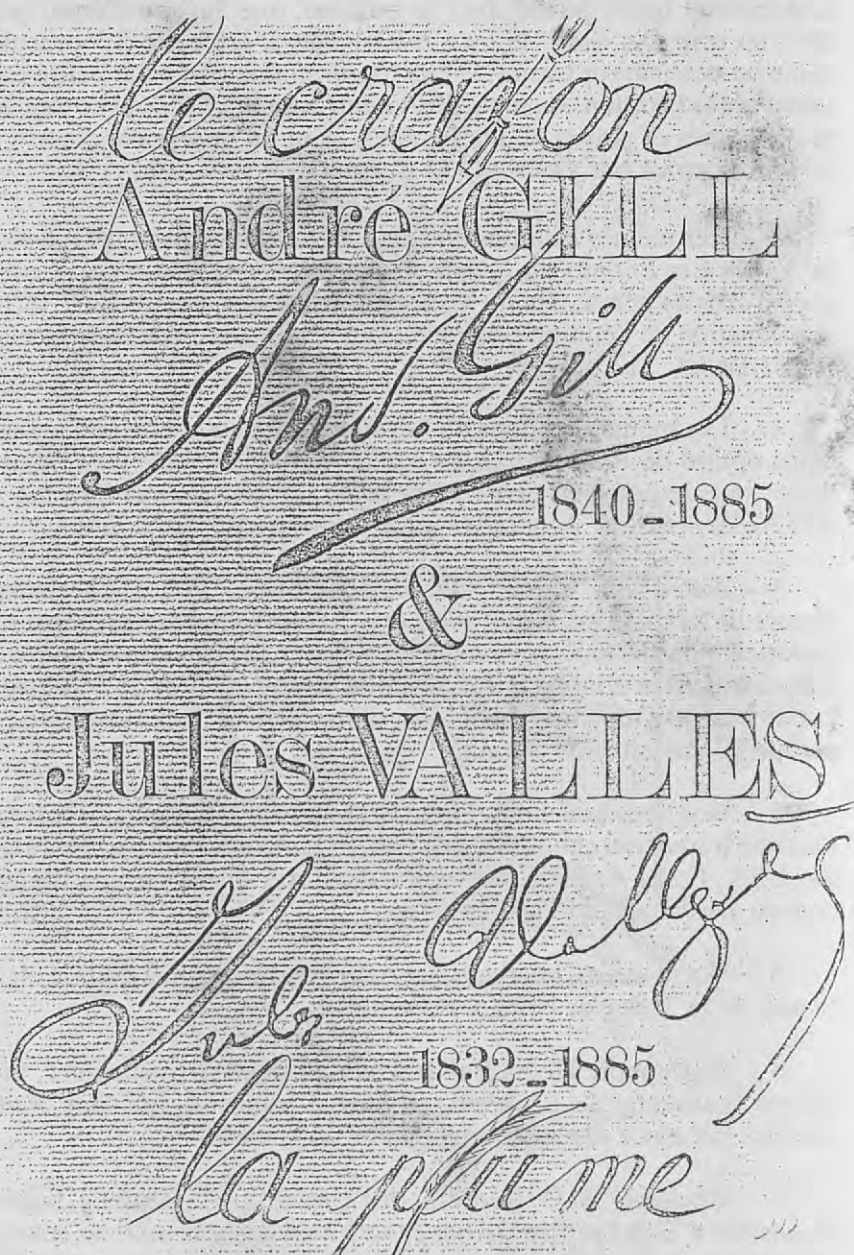 le crayon
André GILL
And. Gill
1840_1885
&
Jules VALLES
Jules Vallès
1832_1885
la plume